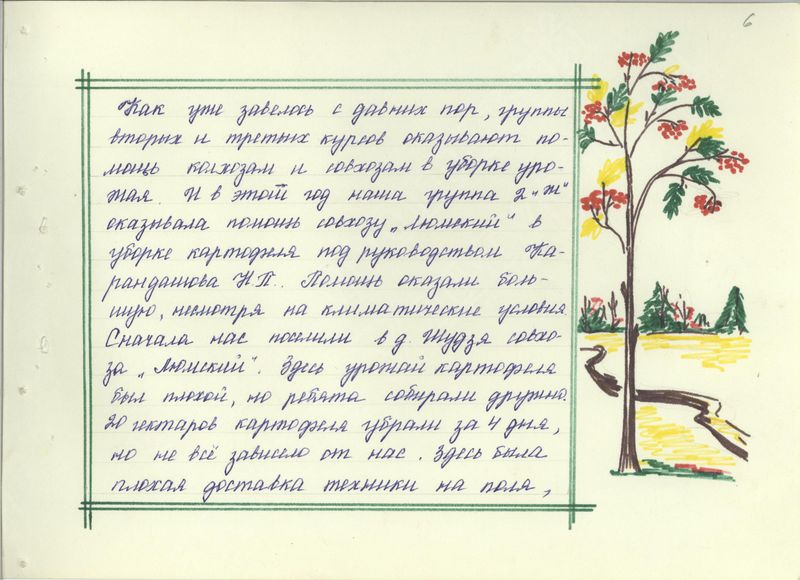 6
Как уже завелось с давних пор, группы
вторых и третьих курсов оказывают по-
мощь колхозам и совхозам в уборке уро-
жая. И в этой год наша группа 2 "Ж"
оказывала помощь совхозу "Люмский" в
уборке картофеля под руководством Ка-
рандашова Н.П.. Помощь оказали боль-
шую, несмотря на климатические условия.
Сначала нас поселили в д. Шудзя совхо-
за "Люмский". Здесь урожай картофеля
был плохой, но ребята собирали дружно.
20 гектаров картофеля убрали за 4 дня,
но не всё зависело от нас. Здесь была
плохая доставка техники на поля,